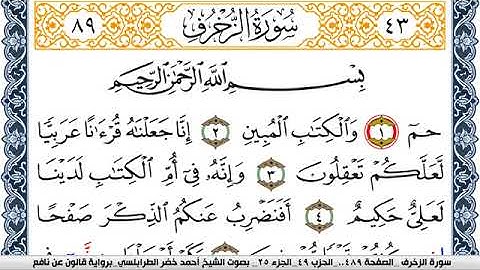 ٤٣ سُورَةُ الزُّخْرُفِ ٨٩
بِسْمِ اللَّهِ الرَّحْمَٰنِ الرَّحِيمِ
حمٓ ١ وَالْكِتَابِ الْمُبِينِ ٢ إِنَّا جَعَلْنَاهُ قُرْءَانًا عَرَبِيًّا
لَّعَلَّكُمْ تَعْقِلُونَ ٣ وَإِنَّهُ فِي أُمِّ الْكِتَابِ لَدَيْنَا
لَعَلِيٌّ حَكِيمٌ ٤ أَفَنَضْرِبُ عَنكُمُ الذِّكْرَ صَفْحًا
سورة الزخرف _الصفحة ٤٨٩_ الحزب ٤٩_الجزء ٢٥_ بصوت الشيخ أحمد خضر الطرابلسي_ برواية قالون عن نافع